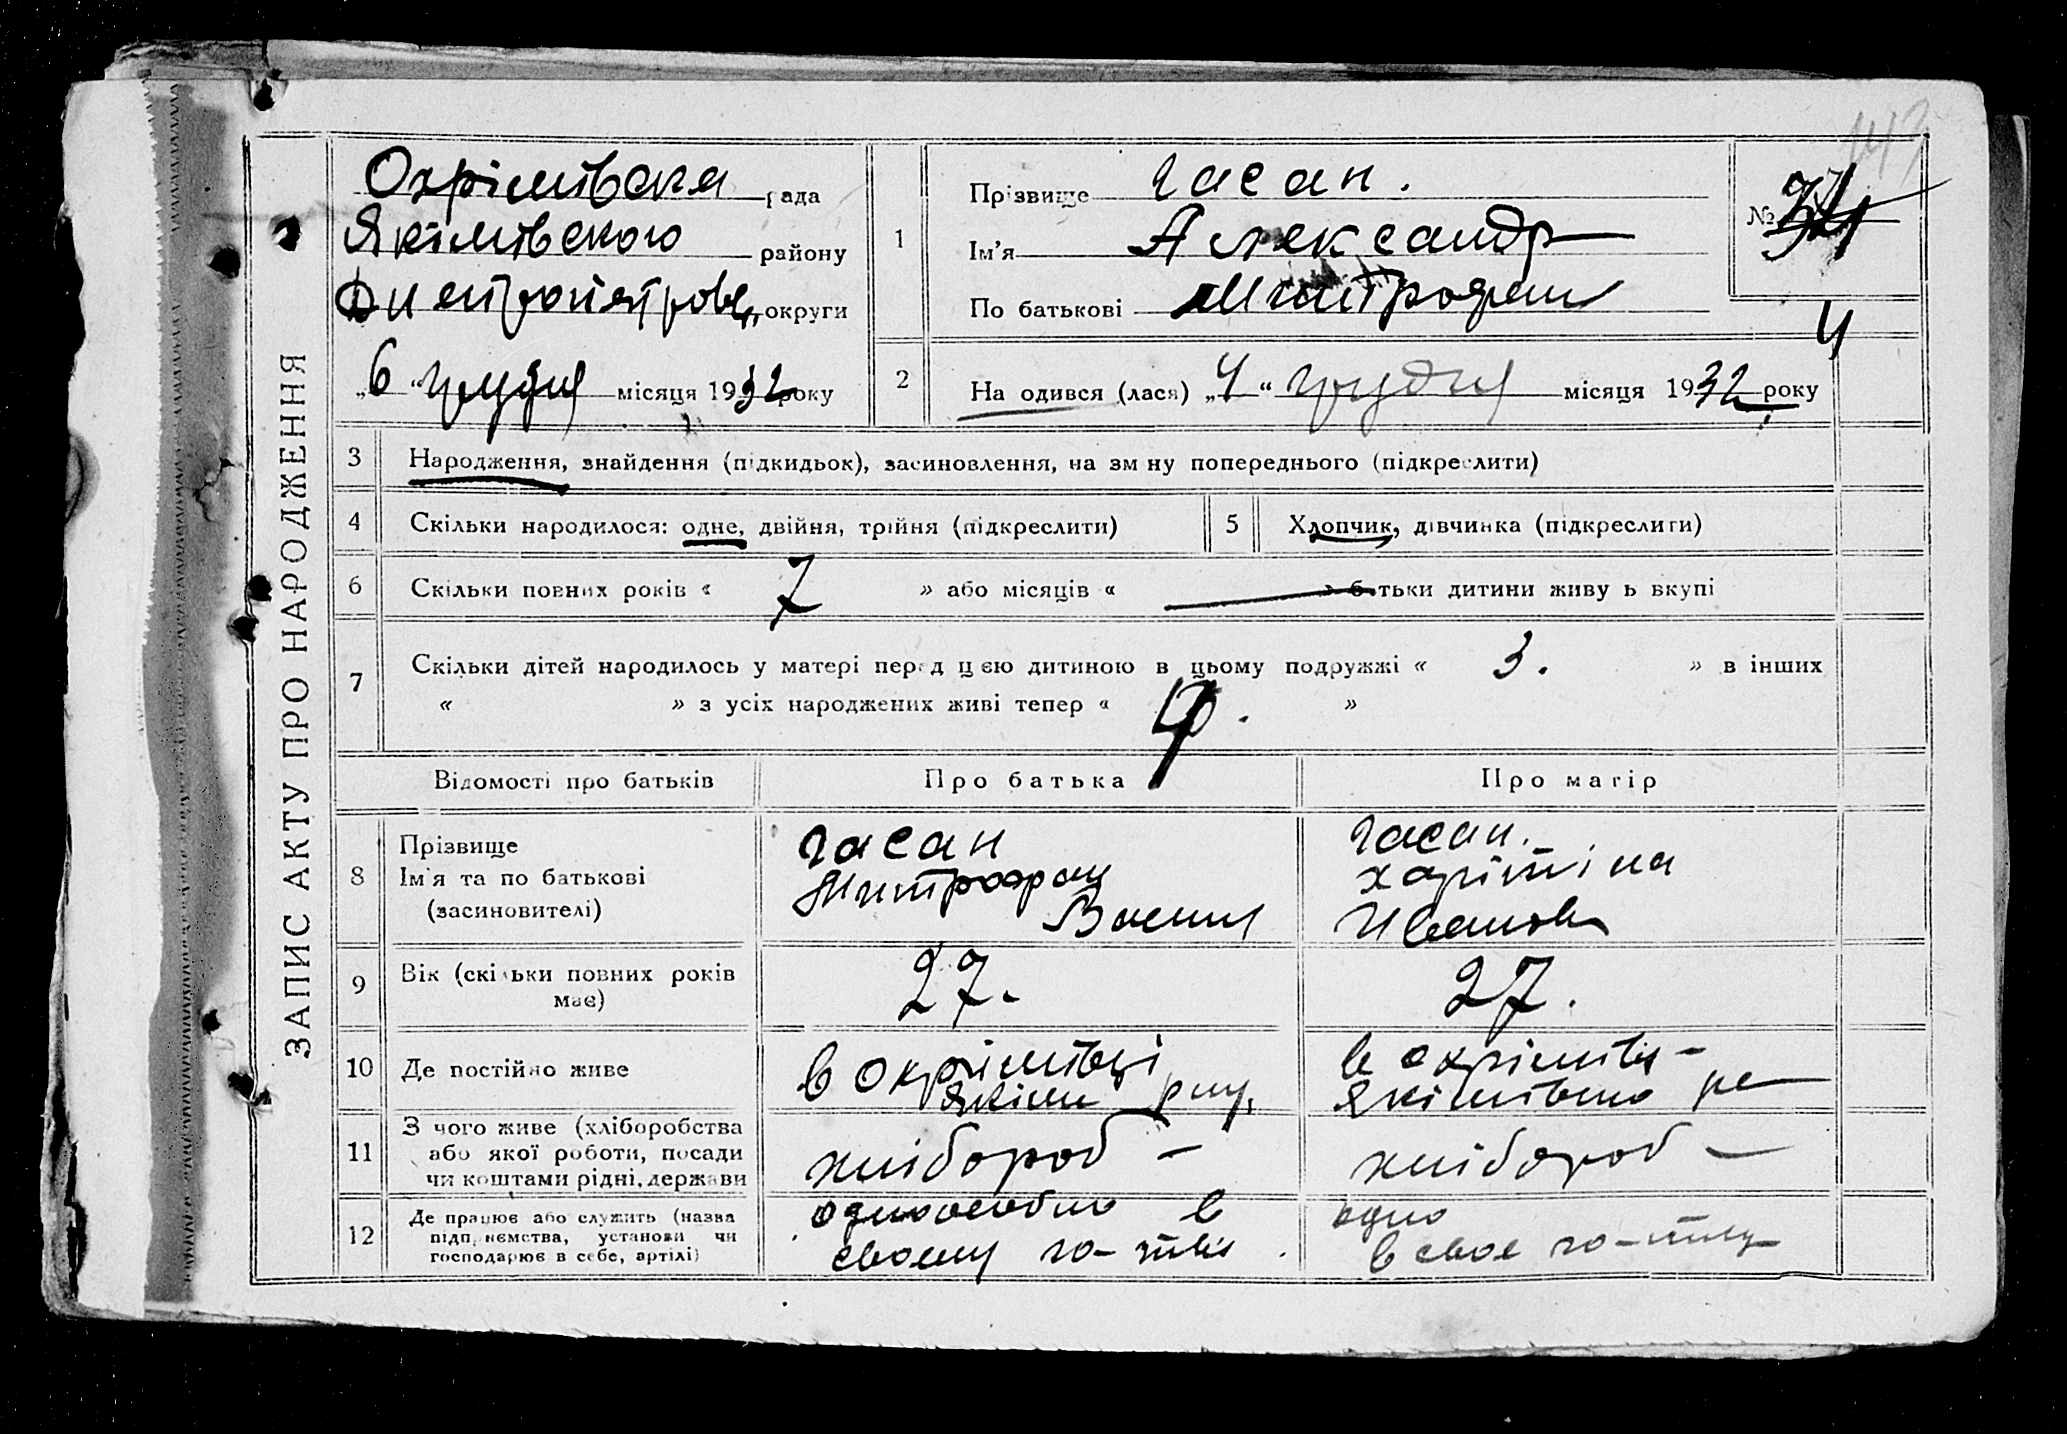 143
ЗАПИС АКТУ ПРО НАРОДЖЕННЯ
Охрімівська рада
Якімівського району
Дніпропетровс. округи
„6“ грудня місяця 1932 року
1
Прізвище Гасан.
Ім'я Александр
По батькові Митрофан
№ 34
4
2
На одився (лася) „4“ грудня місяця 1932 року
3 Народження, знайдення (підкидьок), засиновлення, на зм ну попереднього (підкреслити)
4 Скільки народилося: одне, двійня, трійня (підкреслити)
5 Хлопчик, дівчинка (підкреслити)
6 Скільки повних років « 7 » або місяців « » б тьки дитини живу ь вкупі
7 Скільки дітей народилось у матері перед цією дитиною в цьому подружжі « 3. » в інших
« » з усіх народжених живі тепер « »
Відомості про батьків Про батька Про матір
8
Прізвище
Ім'я та по батькові
(засиновителі)
Гасан
Митрофан
Васил
Гасан.
Харітіна
Иванов
9
Вік (скільки повних років
має)
27.
27.
10 Де постійно живе
в Охрімівці
Якіми рну.
в Охрімів-
Якімівтко ра
11
З чого живе (хліборобства
або якої роботи, посади
чи коштами рідні, держави
хлібороб -
хлібороб -
12
Де працює або служить (назва
підп немства, установи чи
господарює в себе, артілі)
одноосібно в
своему го-тві
одно
в свое го-тву